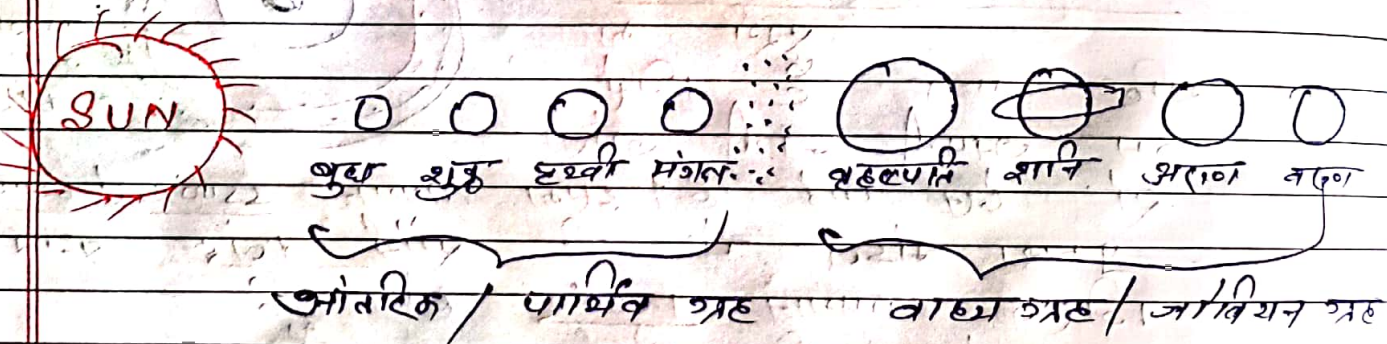 SUN
बुध शुक्र पृथ्वी मंगल बृहस्पति शनि अरुण वरुण
आंतरिक / पार्थिव ग्रह वाह्य ग्रह / जोवियन ग्रह